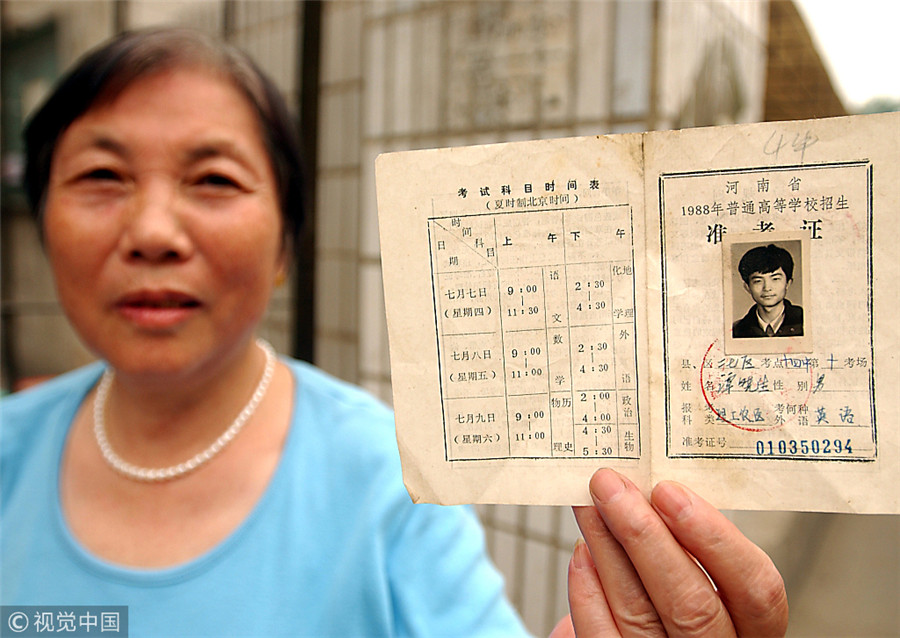 考试科目时间表
(夏时制北京时间)
时间
科目
日期
上 午
下 午
七月七日
(星期四)
9:00
|
11:30
语文
2:30
|
4:30
化学
地理
七月八日
(星期五)
9:00
|
11:00
数学
2:30
|
4:30
外语
七月九日
(星期六)
9:00
|
11:00
物理
历史
2:00
|
4:00
政治
4:30
|
5:30
生物
4年
河南省
1988年普通高等学校招生
准考证
县、区 北区 考点 十四中 第 十 考场
姓名 晓生 性别 男
报考科类 理工农医 考何种外语 英语
准考证号 010350294
©视觉中国